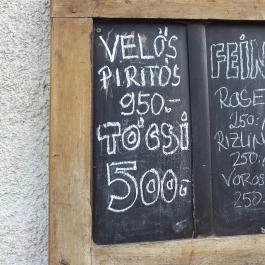 VELŐS
PIRÍTÓS
950.-
TÓCSI
500.-
FEIN
ROSE
250.-
RIZLIN
250.-
VÖRÖS
250.